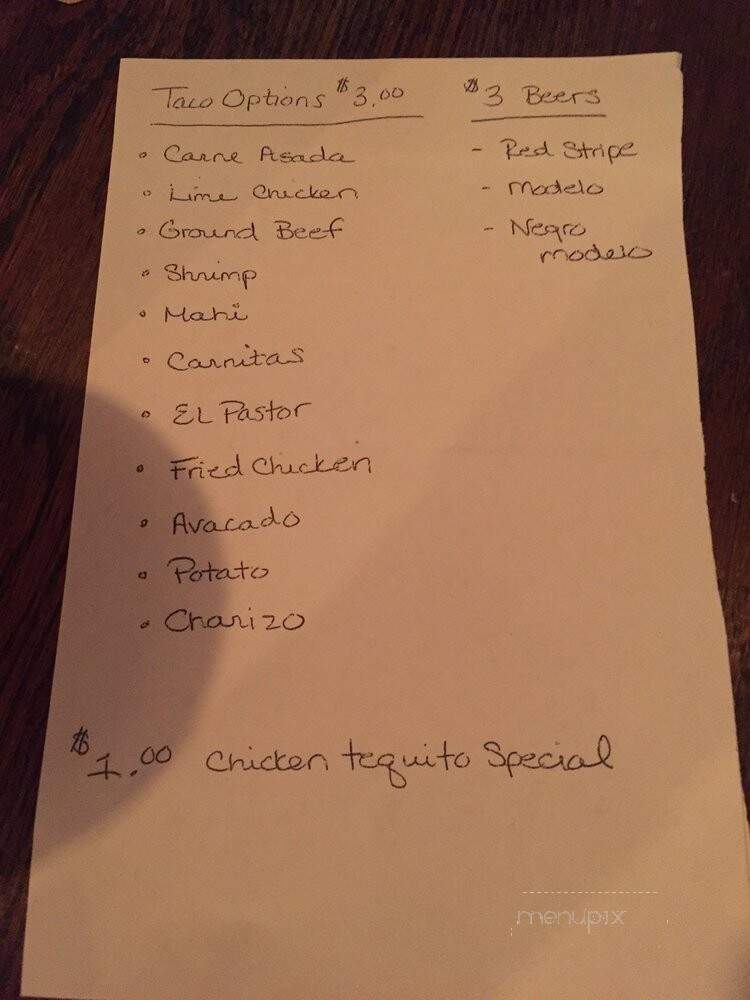 Taco Options $3.00
• Carne Asada
• Lime Chicken
• Ground Beef
• Shrimp
• Mahi
• Carnitas
• EL Pastor
• Fried Chicken
• Avacado
• Potato
• Charizo
$3 Beers
- Red Stripe
- Modelo
- Negro
modelo
$1.00 Chicken tequito Special
menupix